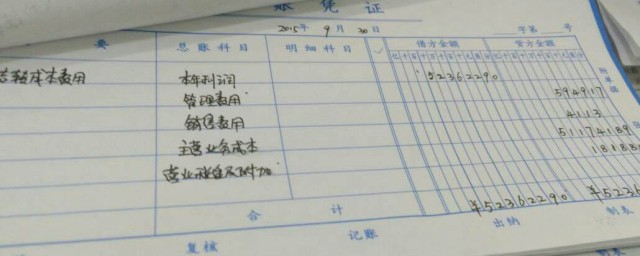 账凭证
2015年 9月 30日 字第 号
要 总账科目 明细科目 借方金额 贷方金额
结转成本费用 本年利润 52362290
管理费用 594917
销售费用 4113
主营业务成本 51174189
营业税金及附加 18188
合计 ¥52362290 ¥5236
复核 记账 出纳 制表